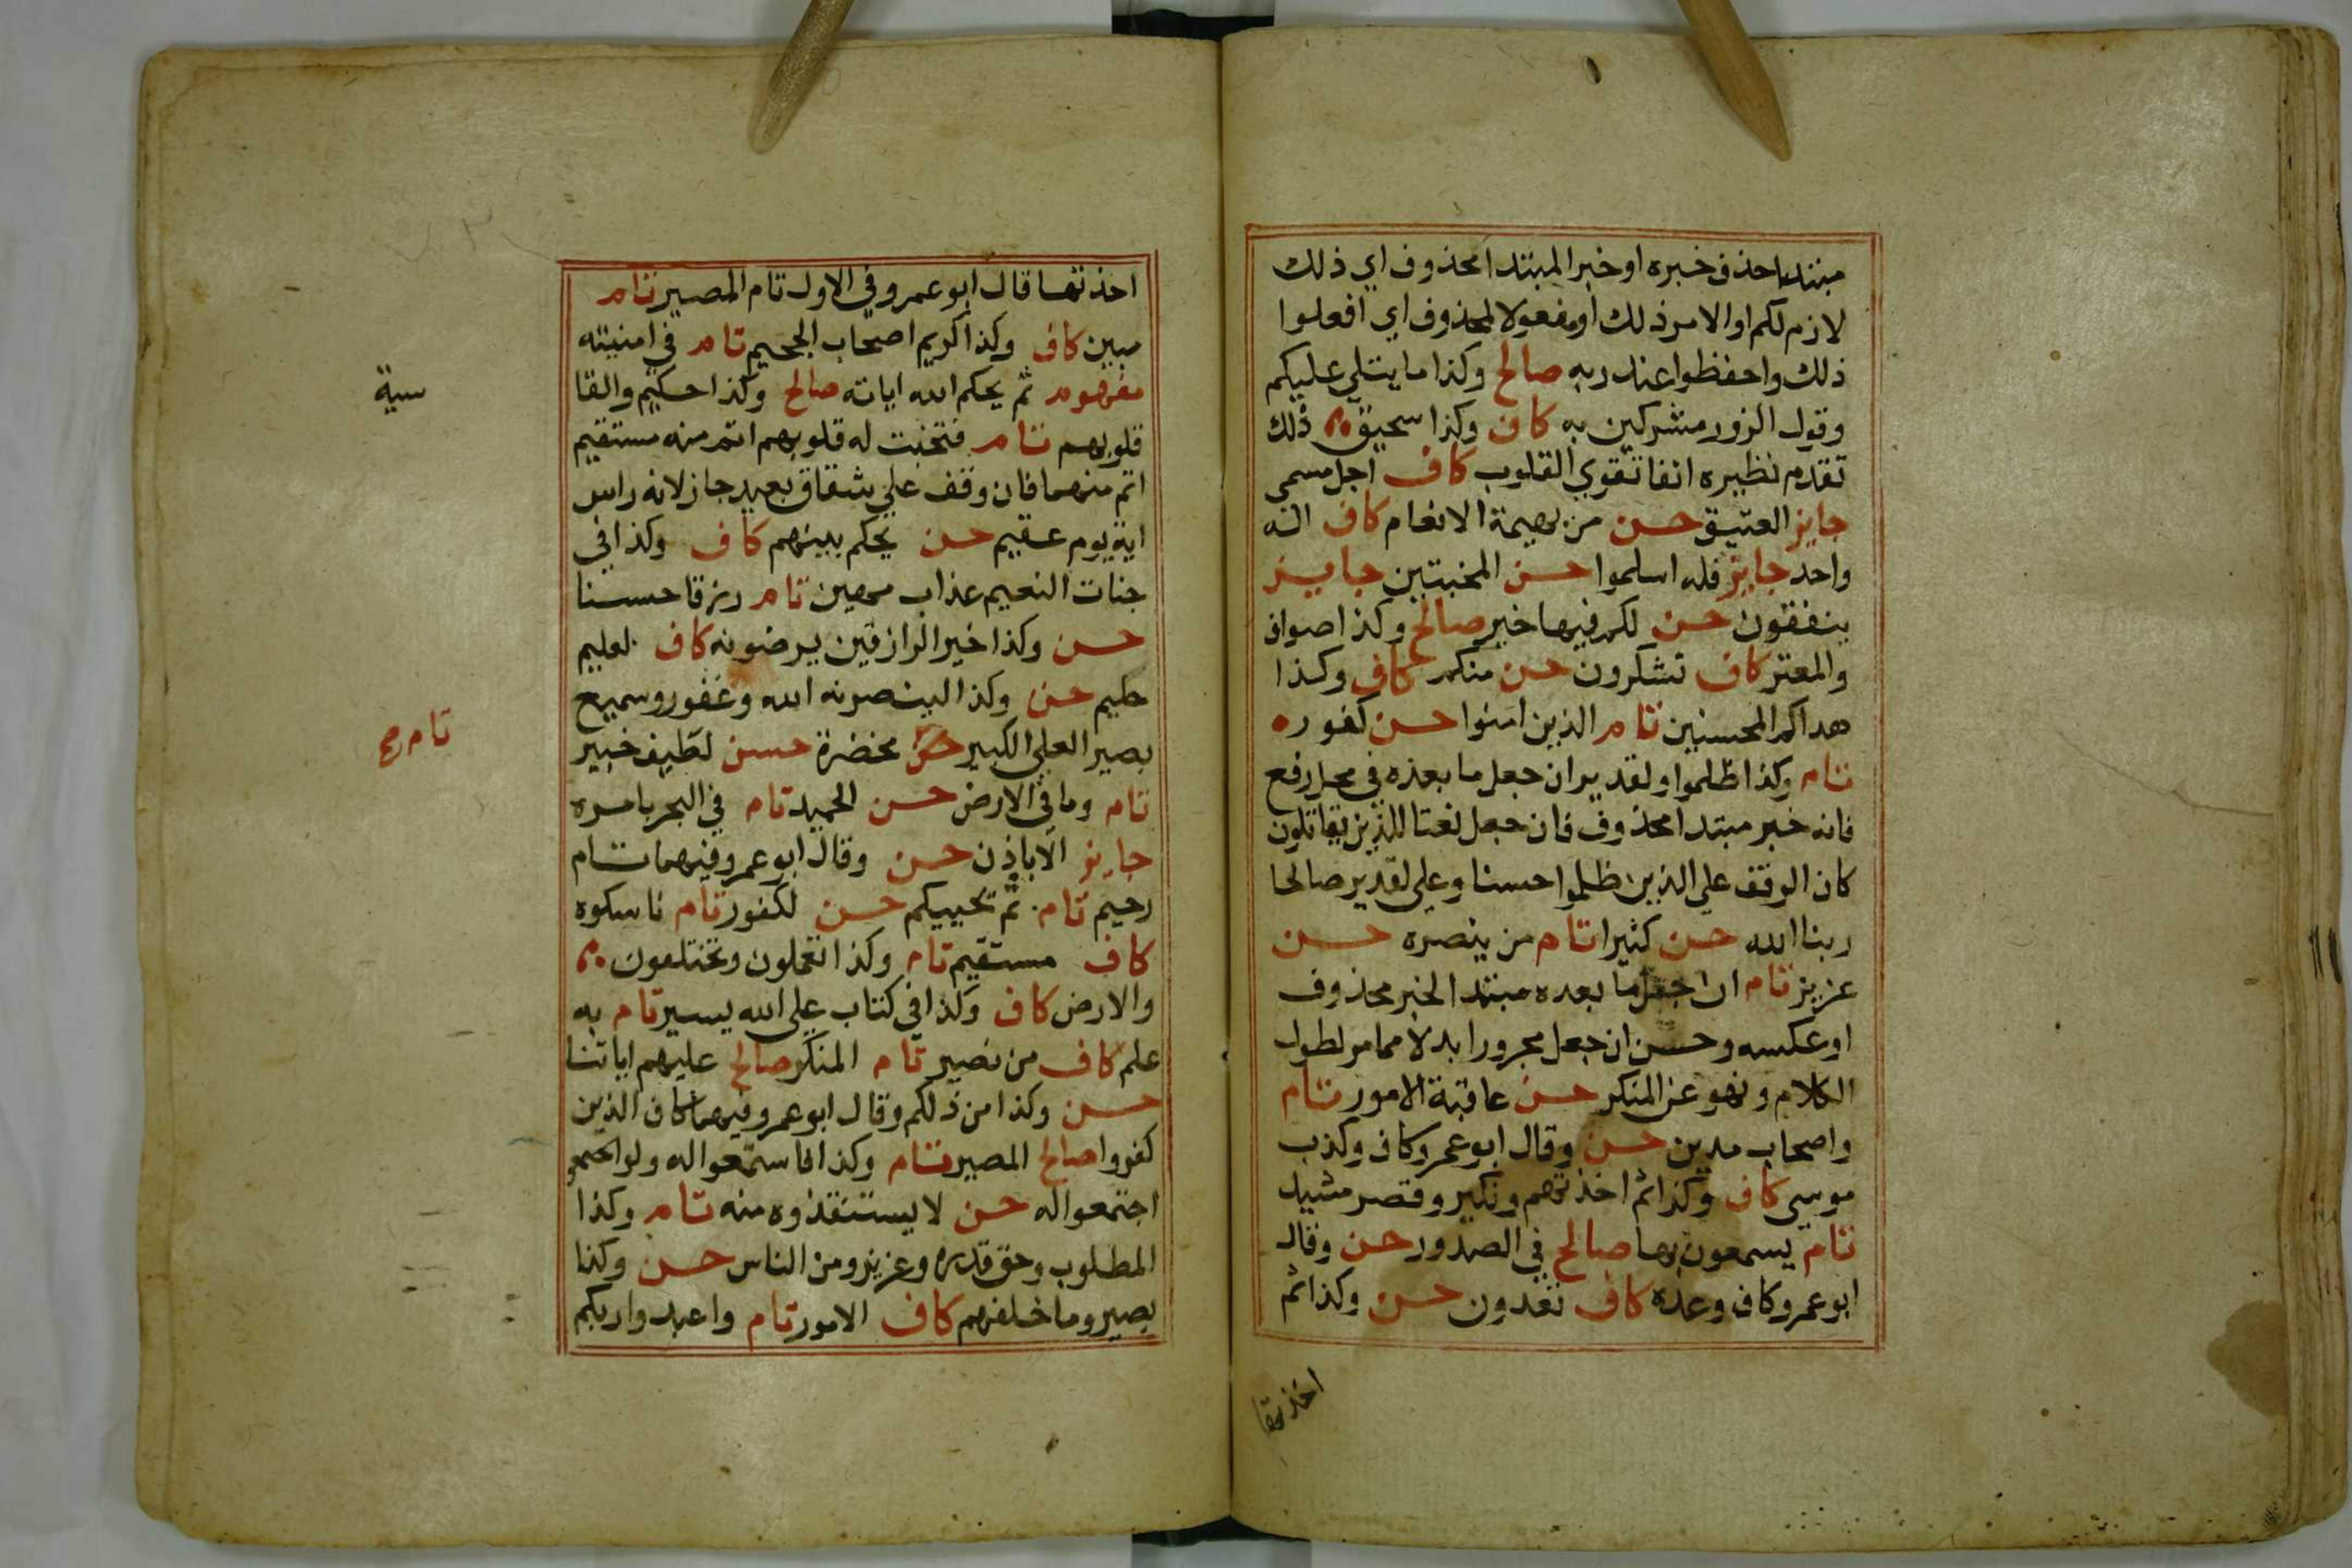 مبتدا حذف خبره او خبر المبتدا محذوف اي ذلك
لازم لكم او الامر ذلك او مفعولا لمحذوف اي افعلوا
ذلك واحفظوا عند ربه صالح وكذا ما يتلي عليكم
وقول الزور مشركين به كاف وكذا سحيق ذلك
تقدم نظيره انفا تقوي القلوب كاف اجل مسمي
جايز العتيق حسن من بهيمة الانعام كاف اله
واحد جايز فله اسلموا حسن المخبتين جايز
ينفقون حسن لكم فيها خير صالح وكذا صواف
والمعتر كاف تشكرون حسن منكم كاف وكذا
هداكم المحسنين تام الذين امنوا حسن كفور ه
تام وكذا ظلموا ولقدير ان جعل ما بعده في محل رفع
فانه خبر مبتدا محذوف فان جعل نعتا للذين يقاتلون
كان الوقف علي الذين ظلموا حسنا وعلي لقدير صالحا
ربنا الله حسن كثيرا تام من ينصره حسن
عزيز تام ان جعل ما بعده مبتدا الخبر محذوف
او عكسه وحسن ان جعل مجرورا بدلا مما مر لطول
الكلام ونهو عن المنكر حسن عاقبة الامور تام
واصحاب مدين حسن وقال ابو عمرو كاف وكذب
موسي كاف وكذا ثم اخذتهم ونكير وقصر مشيد
تام يسمعون بها صالح في الصدور حسن وقال
ابو عمرو كاف وعده كاف تعدون حسن وكذا ثم
اخذتها
اخذتها قال ابو عمرو وفي الاول تام المصير تام
مبين كاف وكذا كريم اصحاب الجحيم تام في امنيته
مفهوم ثم يحكم الله اياته صالح وكذا حكيم والقا
سية
قلوبهم تام فتخبت له قلوبهم اتم منه مستقيم
اتم منهما فان وقف علي شقاق بعيد جاز لانه راس
اية يوم عقيم حسن يحكم بينهم كاف وكذا في
جنات النعيم عذاب مهين تام رزقا حسنا
حسن وكذا خير الرازقين يرضونه كاف لعليم
حليم حسن وكذا لينصرنه الله وغفور وسميع
بصير العلي الكبير حسن مخضرة حسن لطيف خبير
تام صح
تام وما في الارض حسن الحميد تام في البحر بامره
جايز الا باذن حسن وقال ابو عمرو فيهما تام
رحيم تام ثم يحييكم حسن لكفور تام ناسكوه
كاف مستقيم تام وكذا تعملون وتختلفون
والارض كاف وكذا في كتاب علي الله يسير تام به
علم كاف من نصير تام المنكر صالح عليهم اياتنا
حسن وكذا من ذلكم وقال ابو عمرو فيهما كاف الذين
كفروا صالح المصير تام وكذا فاستمعوا له ولو اجتمعو
اجتمعوا له حسن لا يستنقذوه منه تام وكذا
المطلوب وحق قدره وعزيز ومن الناس حسن وكذا
بصير وما خلفهم كاف الامور تام واعبدوا ربكم